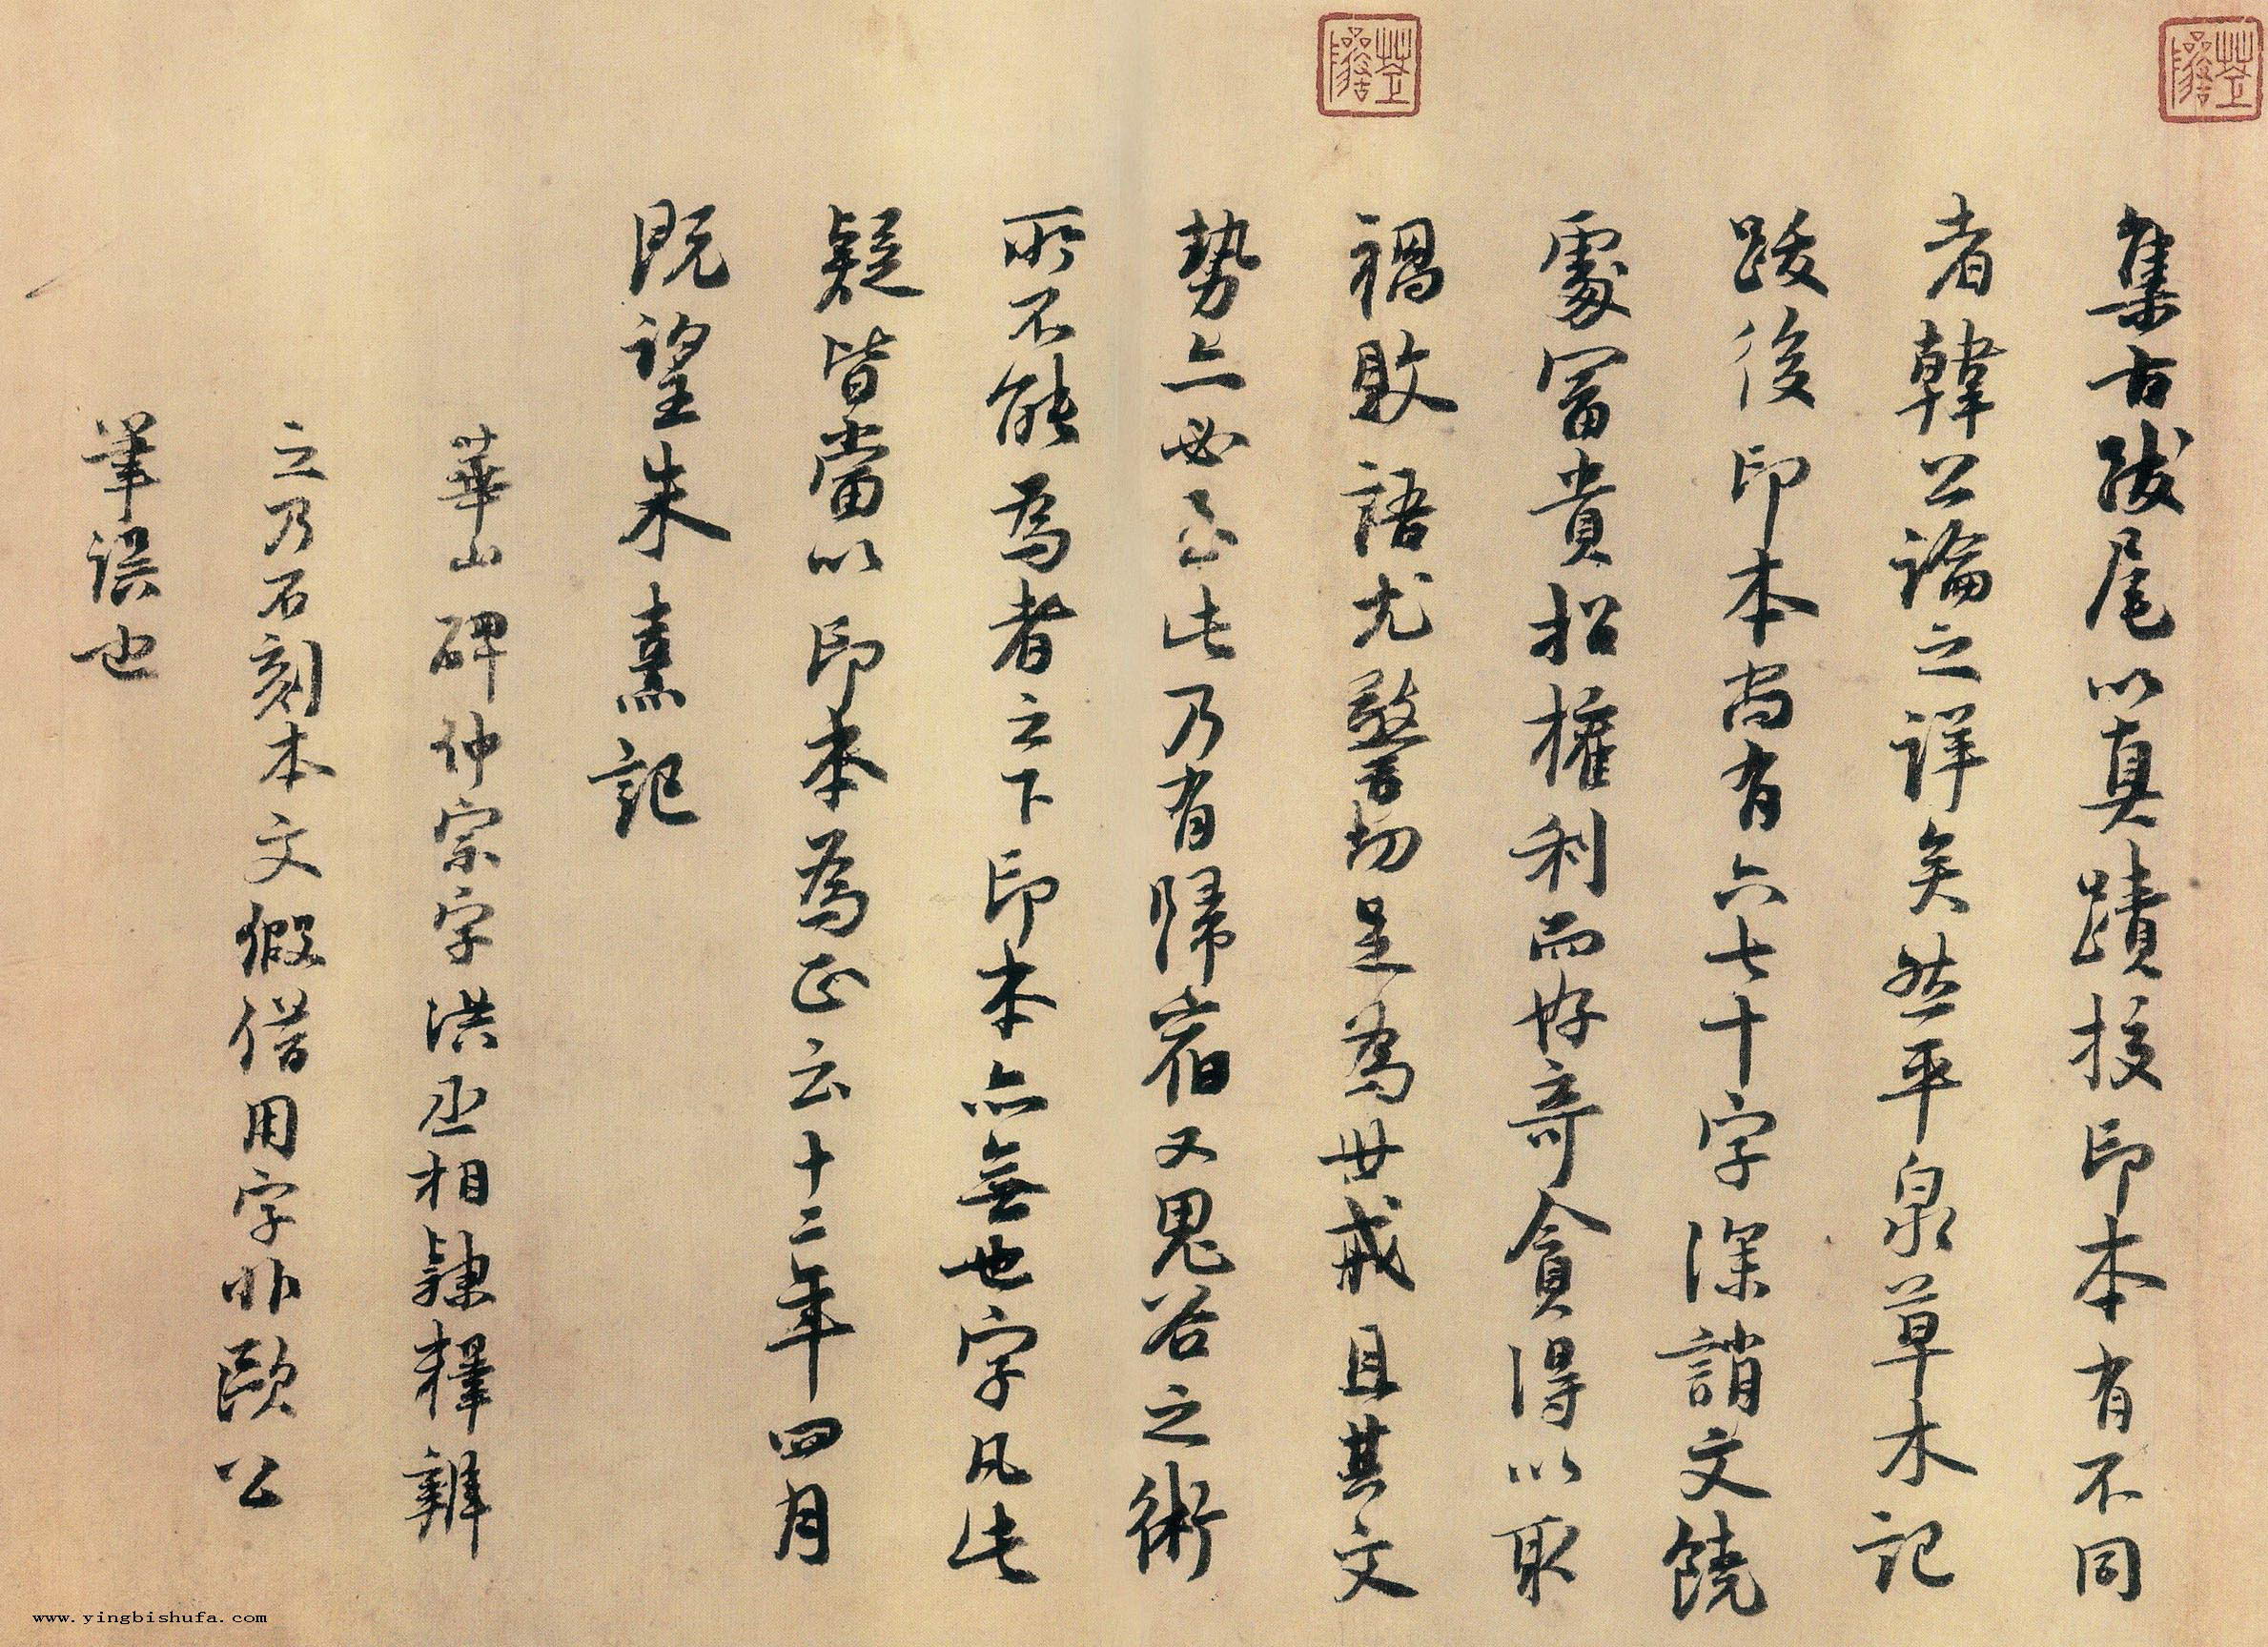 集古跋尾以真蹟挍印本有不同
者韓公論之詳矣然平泉草木記
跋後印本尚有六七十字深誚文饒
處冨貴招權利而好竒貪得以取
禍敗語尤警切足為世戒且其文
勢亦必至此乃有歸宿又鬼谷之術
所不能為者之下印本亦無也字凡此
疑皆當以印本為正云十二年四月
既望朱熹記
華山碑仲宗字洪丞相隸釋辨
之乃石刻本文假借用字非歐公
筆誤也
www.yingbishufa.com